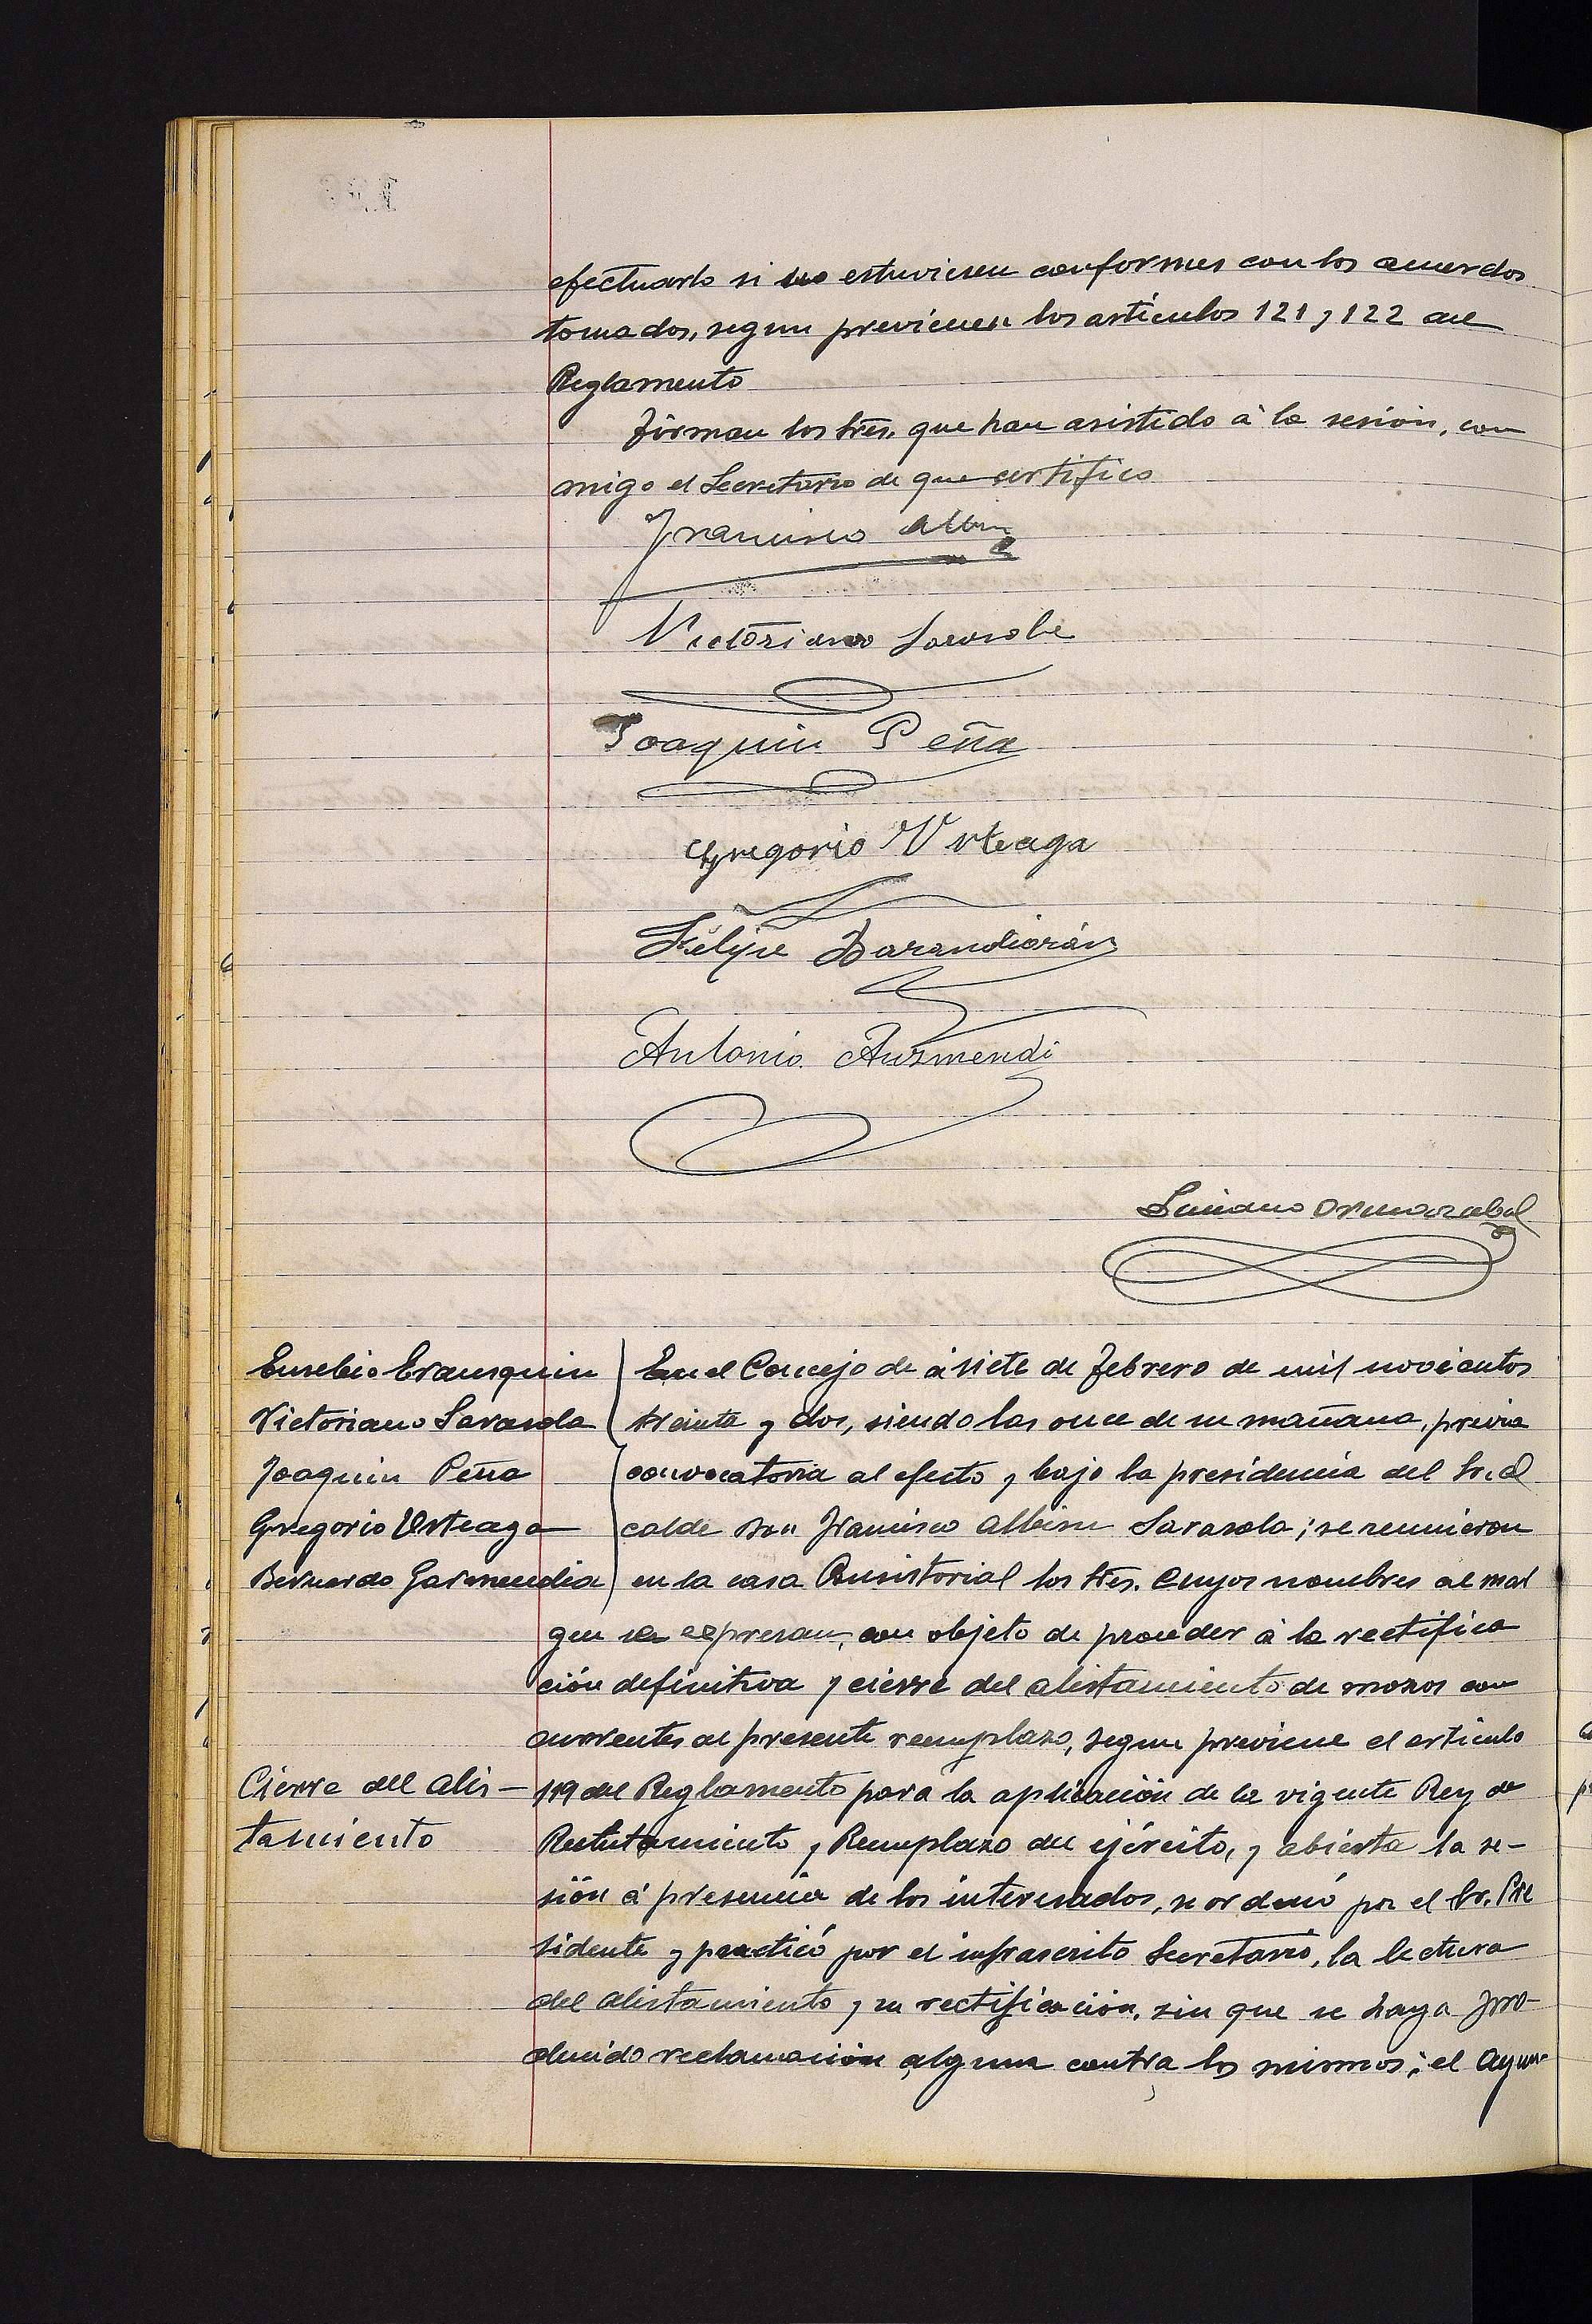 efectuarlo si no estuviesen conformes con los acuerdos
tomados, segun previenen los artículos 121 y 122 del
Reglamento
Firman los Sres. que han asistido á la sesión, con
migo el Secretario de que certifico
Francisco Albisu
Victoriano Sarasola
Joaquin Peña
Gregorio Urteaga
Felipe Barandiarán
Antonio Auzmendi
Luciano Ormazabal
Eusebio Erausquin
Victoriano Sarasola
Joaquin Peña
Gregorio Urteaga
Bernardo Garmendia
En el Concejo de á siete de Febrero de mil novecientos
treinta y dos, siendo las once de su mañana, previa
convocatoria al efecto y bajo la presidencia del Sr. Al
calde Don Francisco Albisu Sarasola; se reunieron
en la casa Consistorial los Sres. cuyos nombres al mar
gen se expresan, con objeto de proceder á la rectifica
ción definitiva y cierre del alistamiento de mozos con
currentes al presente reemplazo, segun previene el articulo
Cierre del alis-
tamiento
119 del Reglamento para la aplicación de la vigente Rey de
Reclutamiento y Reemplazo del ejército, y abierta la se-
sión á presencia de los interesados, se ordenó por el Sr. Pre
sidente y practicó por el infrascrito Secretario, la lectura
del alistamiento y su rectificación, sin que se haya pro-
ducido reclamación alguna contra los mismos; el Ayun-